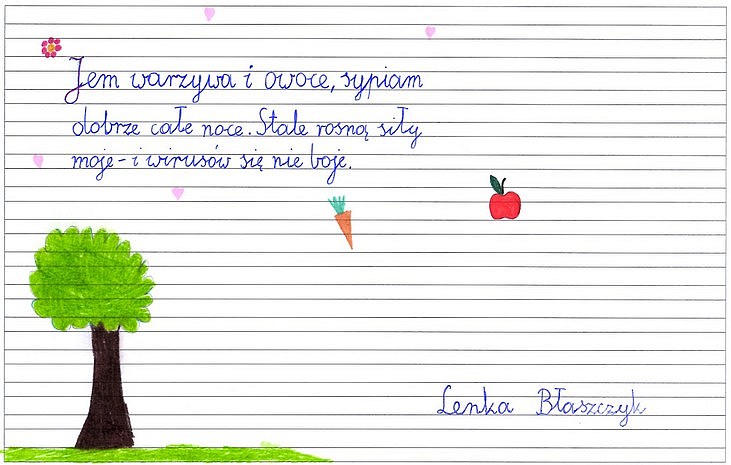 Jem warzywa i owoce, sypiam
dobrze całe noce. Stale rosną siły
moje - i wirusów się nie boje.
Lenka Błaszczyk